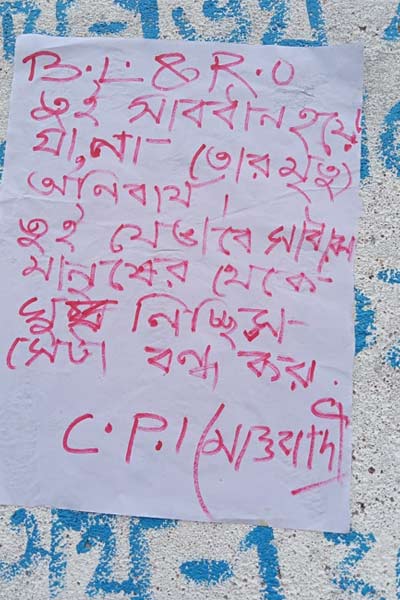 B.L & R.O
তুই সাবধান হয়ে
যা, না তোর মৃত্যু
অনিবার্য।
তুই যেভাবে সাধারন
মানুষের থেকে
ঘুষ নিচ্ছিস
সেটা বন্ধ কর।
C.P.I (মাওবাদী)